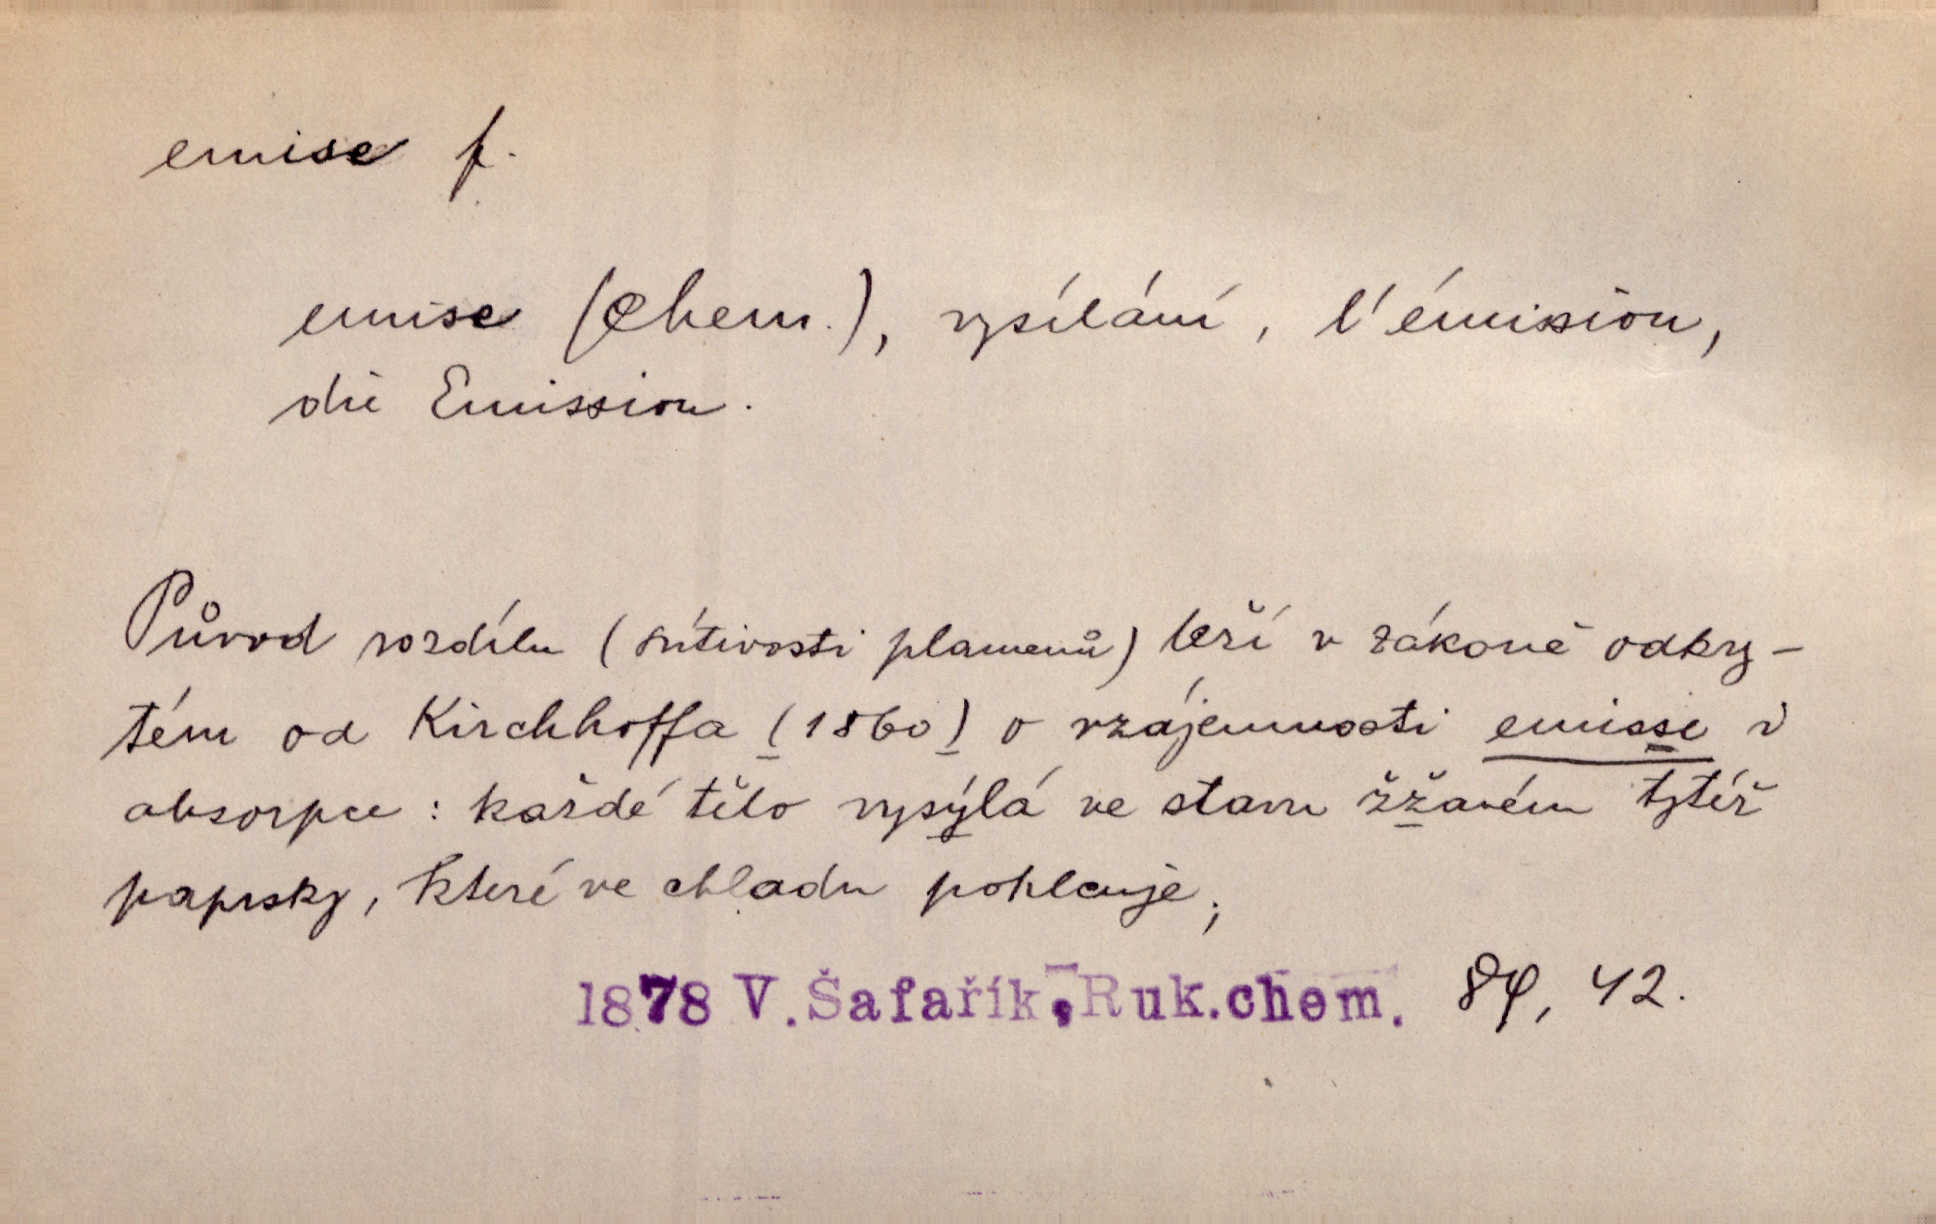 emise f.
emise (chem.), vysílání, l'émission,
die Emission.
Původ rozdílu (svítivosti plamenů) leží v zákoně odkry-
tém od Kirchhoffa (1860) o vzájemnosti emisse i
absorpce: každé tělo vysýlá ve stavu žžavém tytéž
paprsky, které ve chladu pohlcuje;
1878 V. Šafařík, Ruk.chem. 42.